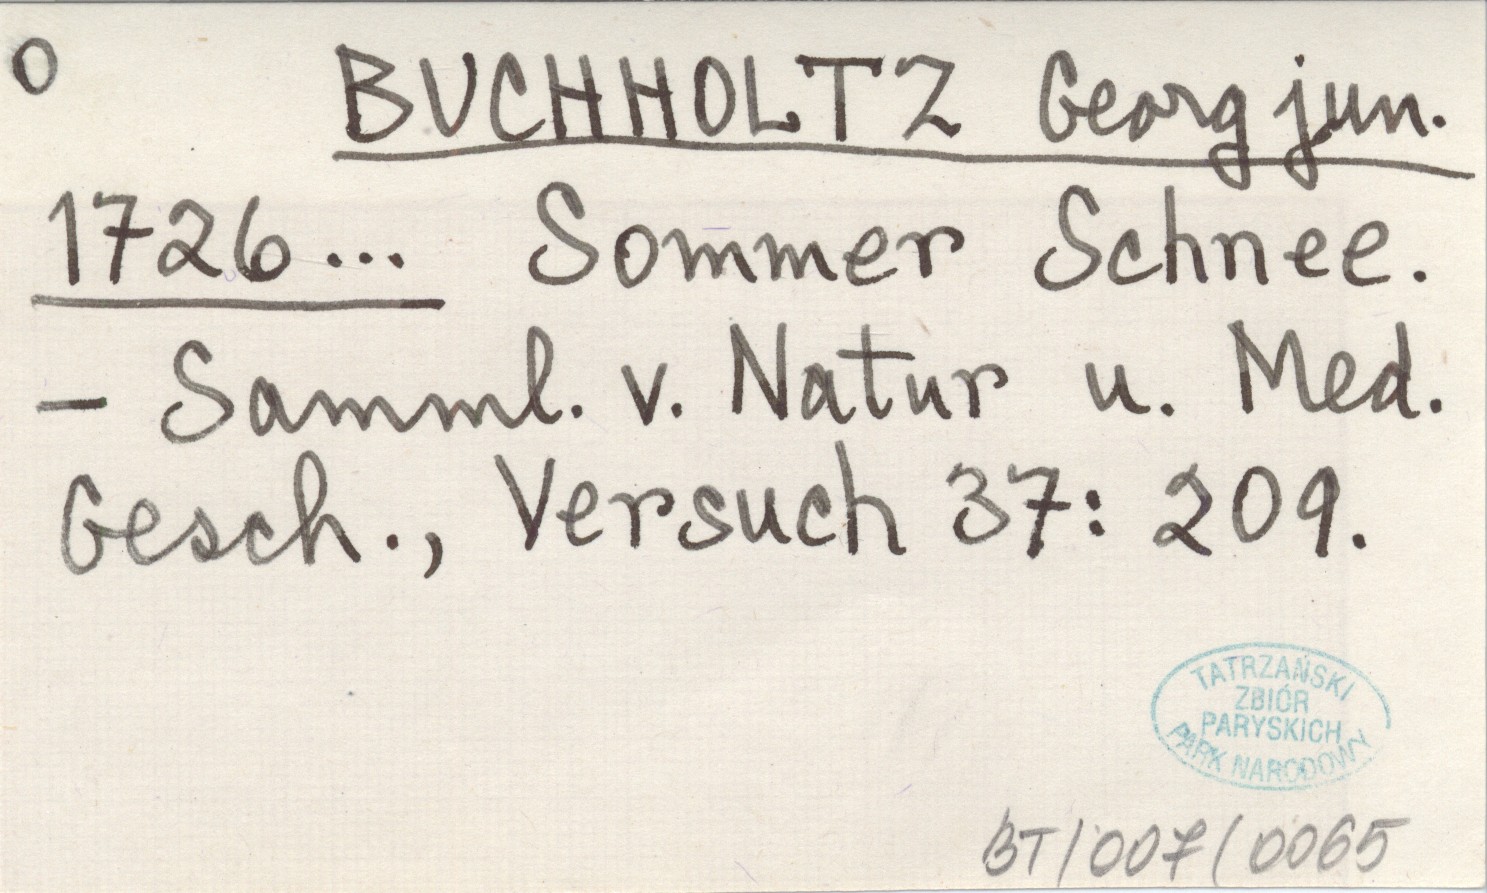 O BUCHHOLTZ Georg jun.
1726... Sommer Schnee.
- Samml. v. Natur u. Med.
Gesch., Versuch 37: 209.
TATRZAŃSKI
ZBIÓR
PARYSKICH
PARK NARODOWY
BT/007/0065